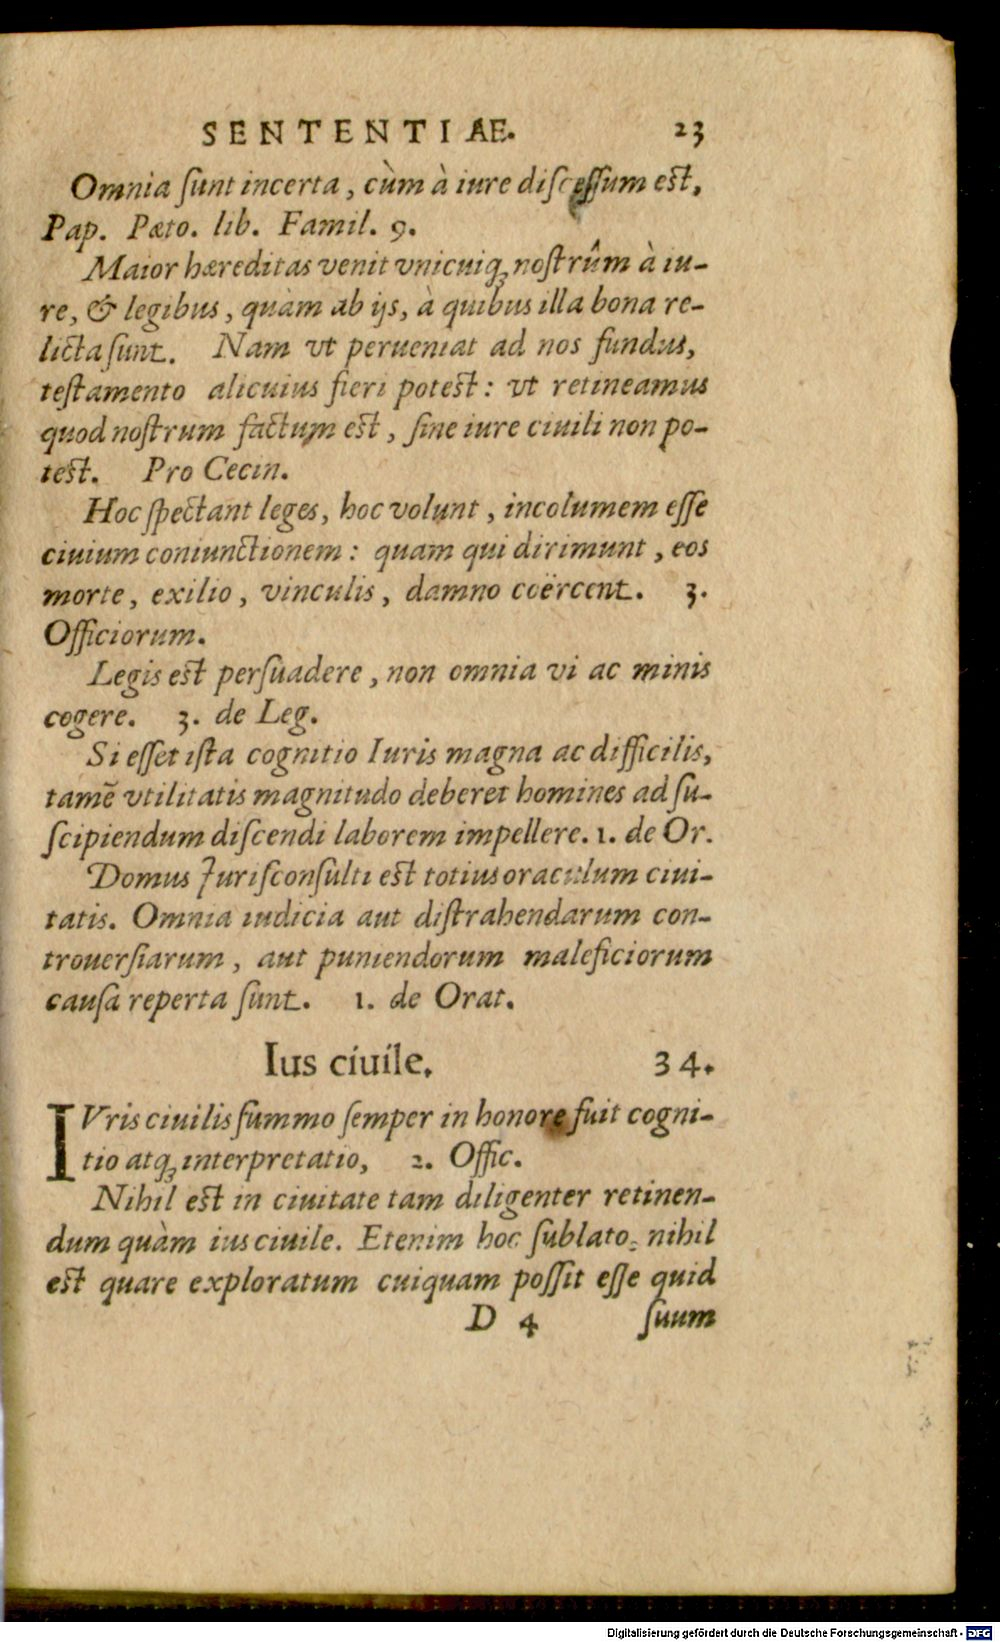 SENTENTIAE. 23
Omnia ſunt incerta, cùm à iure diſceſſum eſt,
Pap. Pæto. lib. Famil. 9.
Maior hæreditas venit vnicuiq́ʒ noſtrûm à iu-
re, & legibus, quàm ab ijs, à quibus illa bona re-
licta ſunt. Nam vt perueniat ad nos fundus,
teſtamento alicuius fieri poteſt: vt retineamus
quod noſtrum factum eſt, ſine iure ciuili non po-
teſt. Pro Cecin.
Hoc ſpectant leges, hoc volunt, incolumem eſſe
ciuium coniunctionem: quam qui dirimunt, eos
morte, exilio, vinculis, damno coërcent. 3.
Officiorum.
Legis eſt perſuadere, non omnia vi ac minis
cogere. 3. de Leg.
Si eſſet iſta cognitio Iuris magna ac difficilis,
tamē vtilitatis magnitudo deberet homines ad ſu-
ſcipiendum diſcendi laborem impellere. 1. de Or.
Domus Juriſconſulti eſt totius oraculum ciui-
tatis. Omnia iudicia aut diſtrahendarum con-
trouerſiarum, aut puniendorum maleficiorum
cauſa reperta ſunt. 1. de Orat.
Ius ciuile. 34.
IVris ciuilis ſummo ſemper in honore fuit cogni-
tio atqʒ interpretatio, 2. Offic.
Nihil eſt in ciuitate tam diligenter retinen-
dum quàm ius ciuile. Etenim hoc ſublato, nihil
eſt quare exploratum cuiquam poſſit eſſe quid
D 4 ſuum
Digitalisierung gefördert durch die Deutsche Forschungsgemeinschaft - DFG